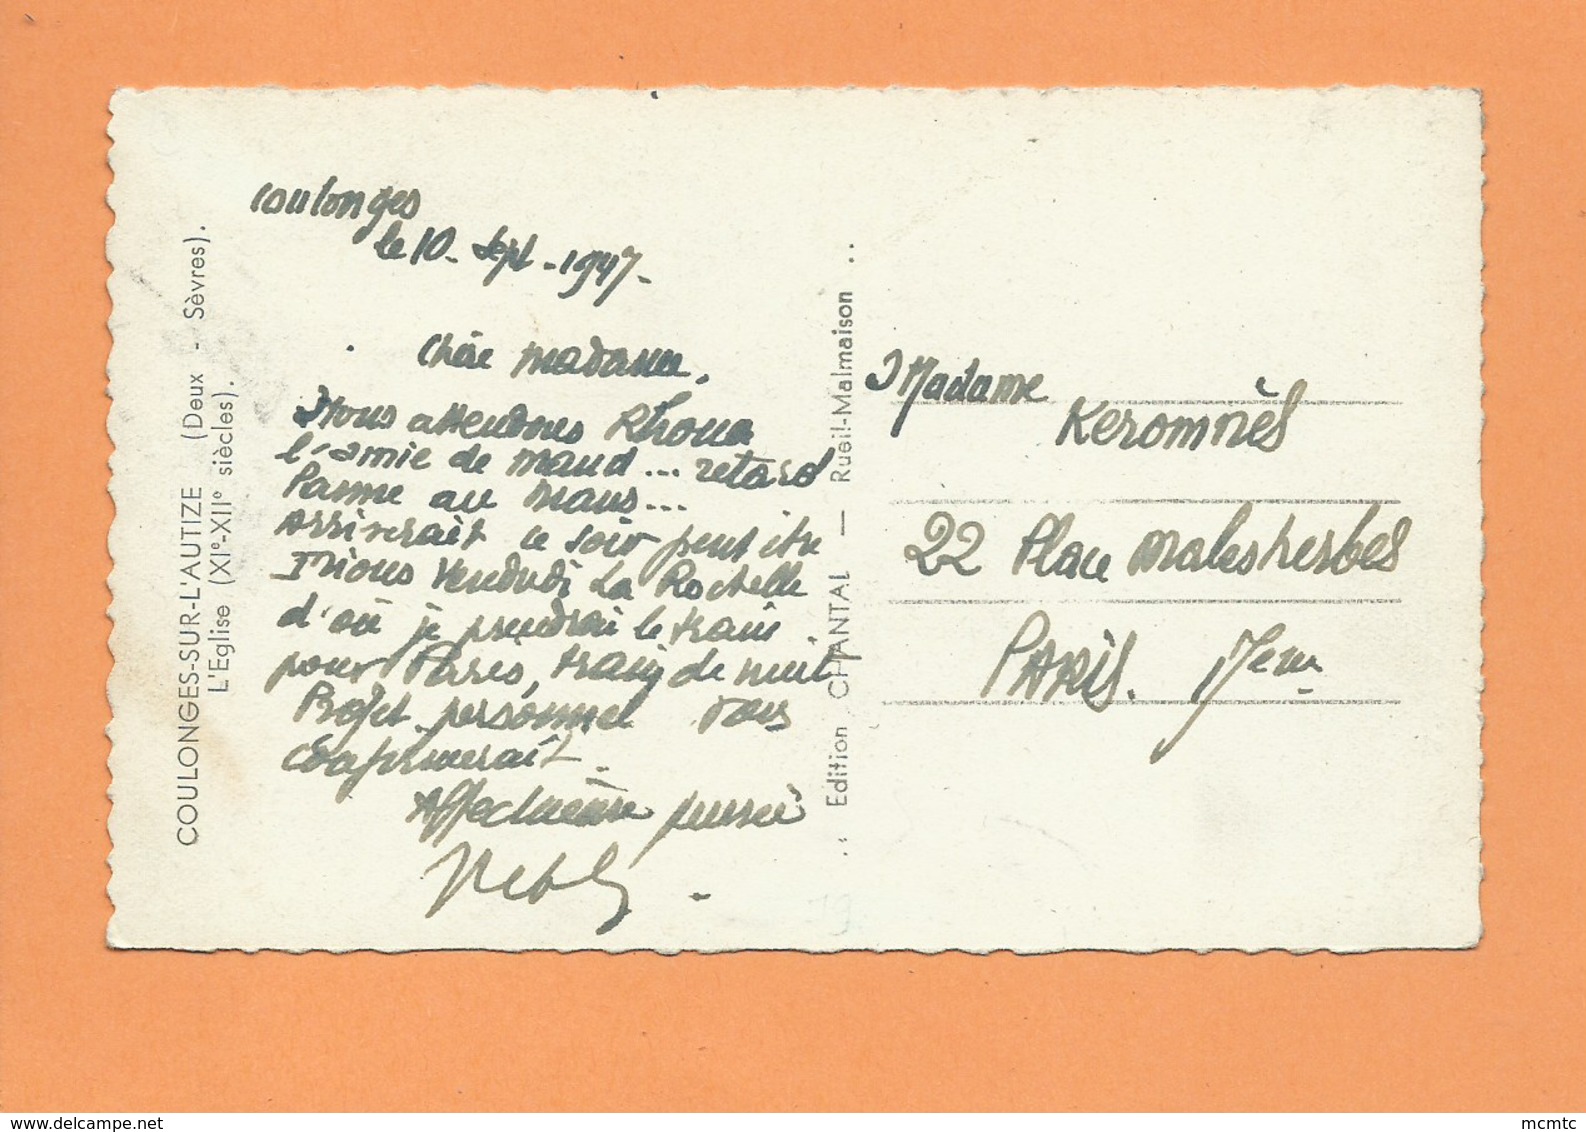 COULONGES-SUR-L'AUTIZE (Deux - Sèvres).
L'Eglise (XI°-XII° siècles).
Coulonges
le 10 - Sept - 1947 -
Chère Madame,
Nous attendons Rhona
l'amie de Maud... retard
Panne au Mans...
Arriverait ce soir peut être
Irions Vendredi La Rochelle
d'où je prendrai le train
pour Paris, train de nuit
Projet personnel vous
confirmerait.
Affectueuse pensée
.. Edition CHANTAL — Rueil-Malmaison ..
Madame
Keromnès
22 Place Malesherbes
PARIS. 7eme
www.delcampe.net
mcmtc